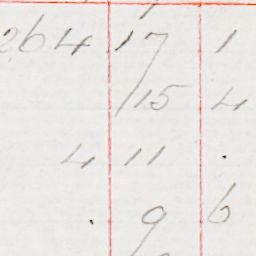 264 17 1
15 4
4 11 .
. 9 6